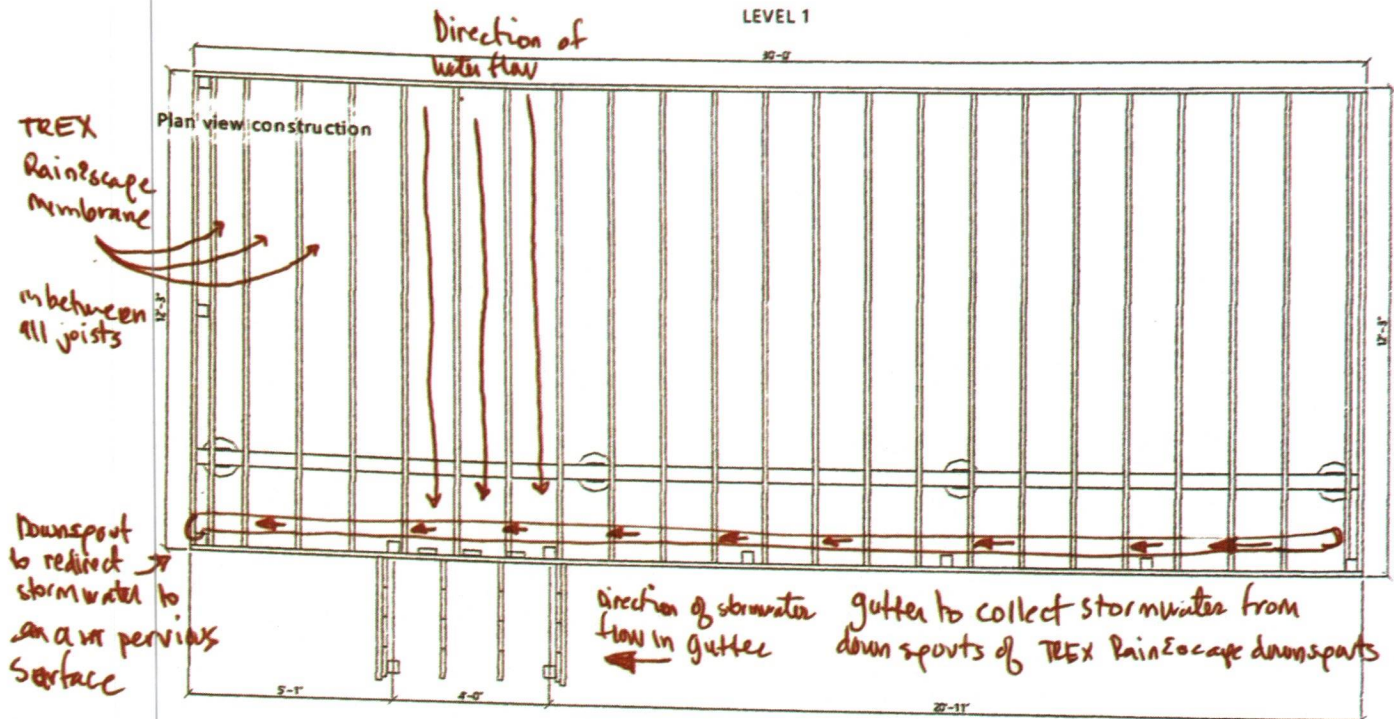 LEVEL 1
Direction of
water flow
30'-0"
Plan view construction
TREX
RainEscape
membrane
in between
all joists
12'-3"
12'-3"
Downspout
to redirect
stormwater to
pervious
Surface
Direction of stormwater
flow in gutter
gutter to collect stormwater from
down spouts of TREX RainEscape downspouts
5'-1"
4'-0"
20'-11"